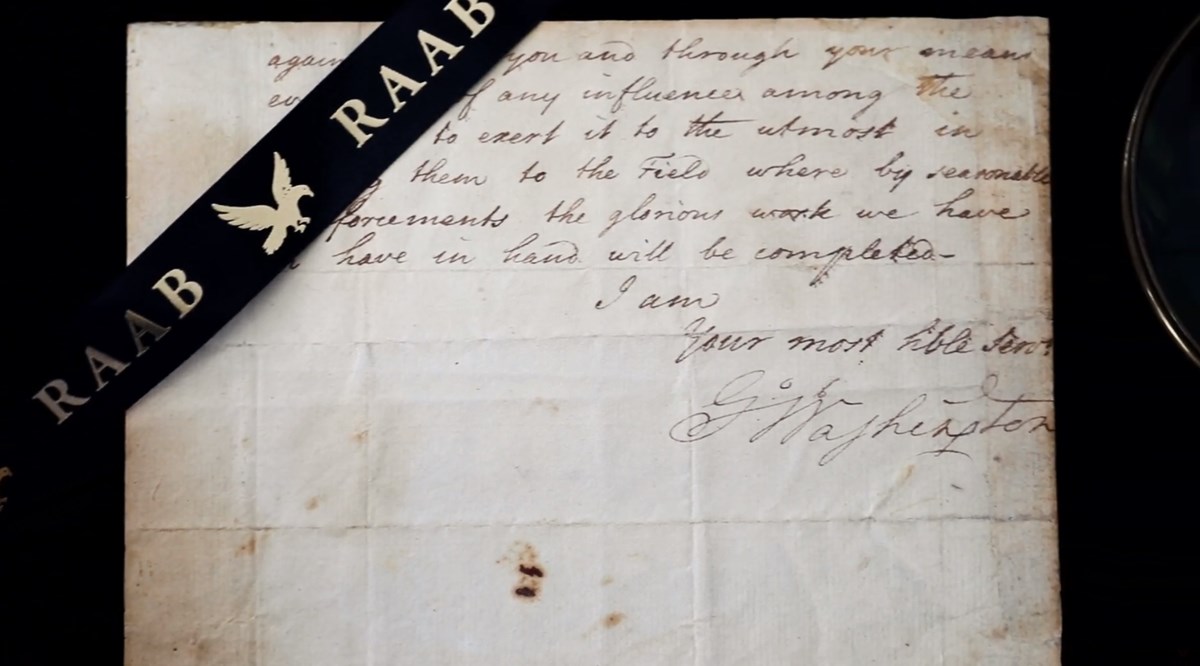 RAAB
RAAB
again you and through your means
ev f any influence among the
to exert it to the utmost in
g them to the Field where by seasonable
forcements the glorious work we have
have in hand will be completed-
I am
Your most hble Servt
Go Washington